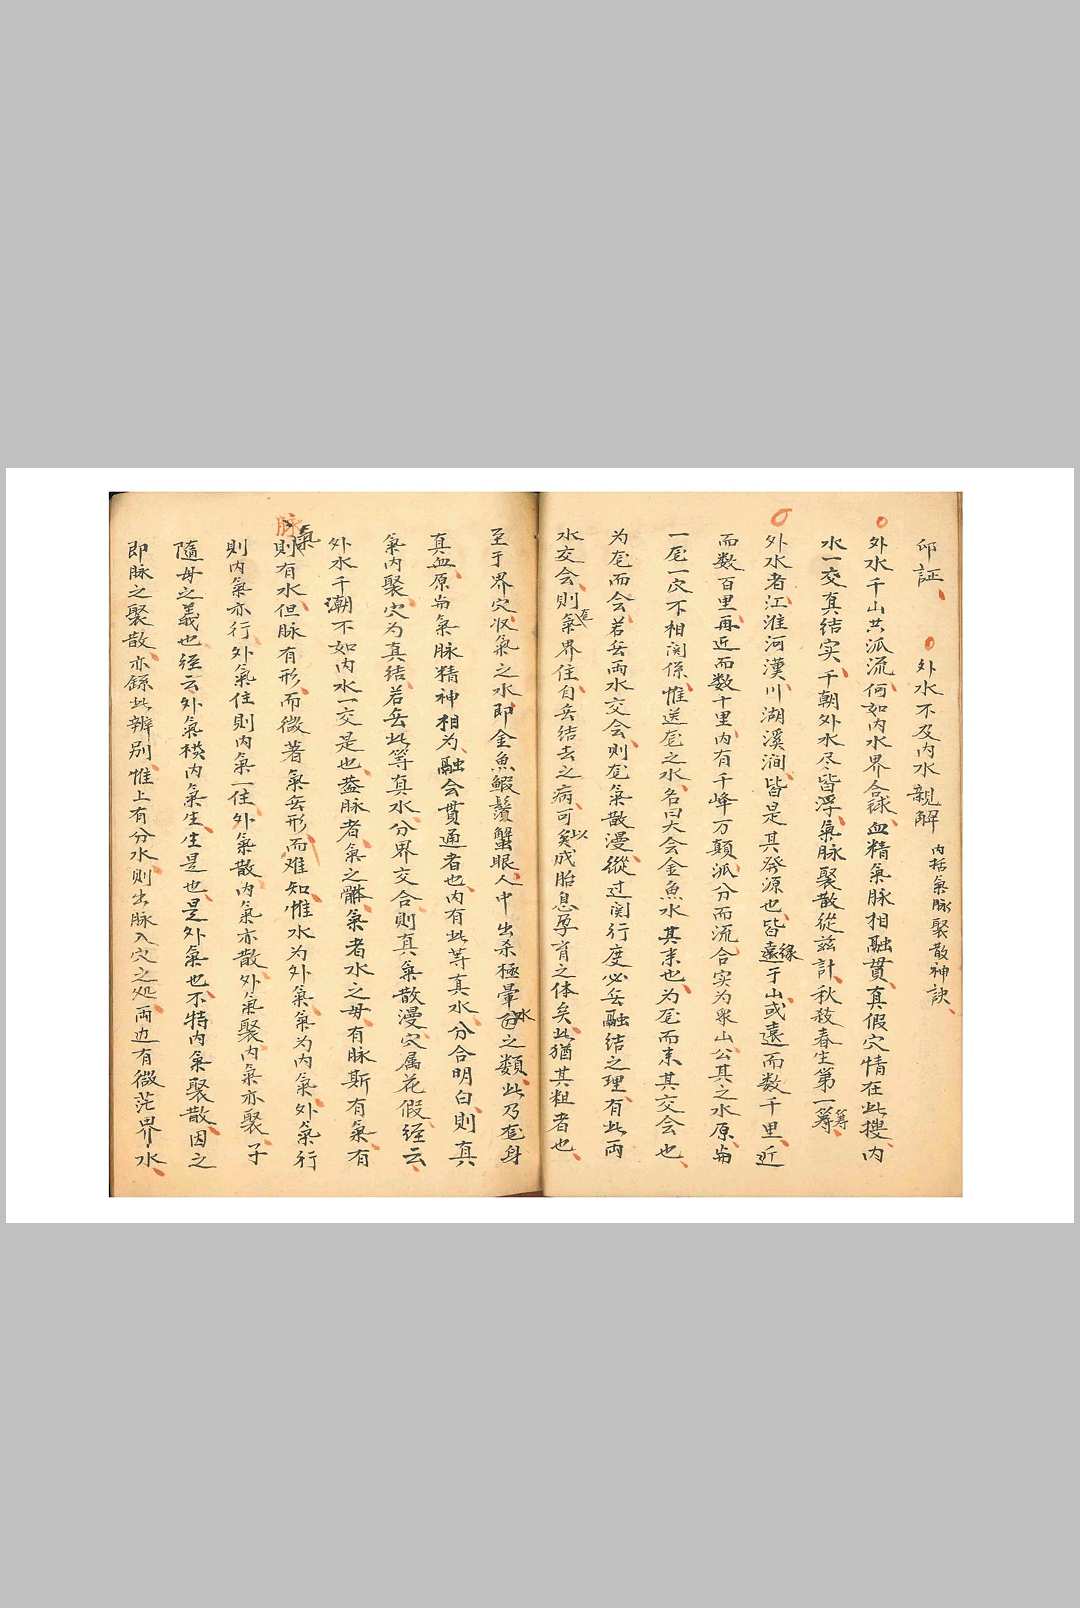 印証 外水不及内水親解 内括氣脉聚散神訣
外水千山共派流何如内水界合毬血精氣脉相融貫真假穴情在此搜内
水一交真结实千朝外水尽皆浮氣脉聚散從兹計秋殺春生第一籌 筹
外水者江淮河漢川湖溪澗皆是其發源也皆遠縁于山或遠而数千里近
而数百里再近而数十里内有千峰万巔派分而流合实为衆山公共之水原
一龙一穴不相関係惟送龙之水名曰大会金魚水其来也为龙而来其交会也
为龙而会若無両水交会则龙氣散漫縱过関行度必無融结之理有此両
水交会则氣界住自無结去之病可以成胎息孕育之体矣此猶其粗者也
至于界穴收氣之水即金魚鰕鬚蟹眼人中出杀極暈水之類此乃龙身
真血原与氣脉精神相为融会貫通者也内有此等真水分合明白则真
氣内聚穴为真结若無此等真水分界交合则真氣散漫穴属花假經云
外水千潮不如内水一交是也盖脉者氣之體氣者水之母有脉斯有氣有
氣则有水但脉有形而微著氣無形而难知惟水为外氣氣为内氣外氣行
则内氣亦行外氣住则内氣一住外氣散内氣亦散外氣聚内氣亦聚子
隨母之義也經云外氣横内氣生生是也是外氣也不特内氣聚散因之
即脉之聚散亦繇此辨别惟上有分水则出脉入穴之处両边有微茫界水